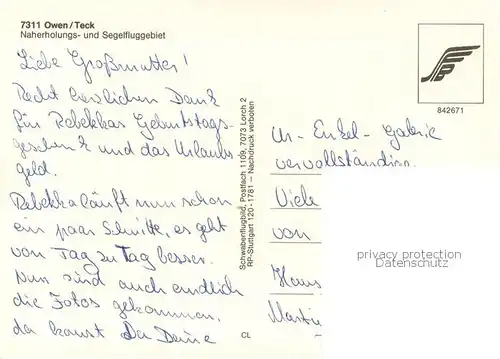 7311 Owen/Teck
Naherholungs- und Segelfluggebiet
Liebe Großmutter!
Recht herzlichen Dank
für Rebekkas Geburtstags-
geschenk und das Urlaubs-
geld.
Rebekka läuft nun schon
ein paar Schritte, es geht
von Tag zu Tag besser.
Nun sind auch endlich
die Fotos gekommen,
da kannst Du Deine
Schwabenflugbild, Postfach 1109, 7073 Lorch 2
RP-Stuttgart 120 - 1781 - Nachdruck verboten
CL
842671
Ur-Enkel-Galerie
vervollständigen.
Viele
von
Hans
Martin
privacy protection
Datenschutz